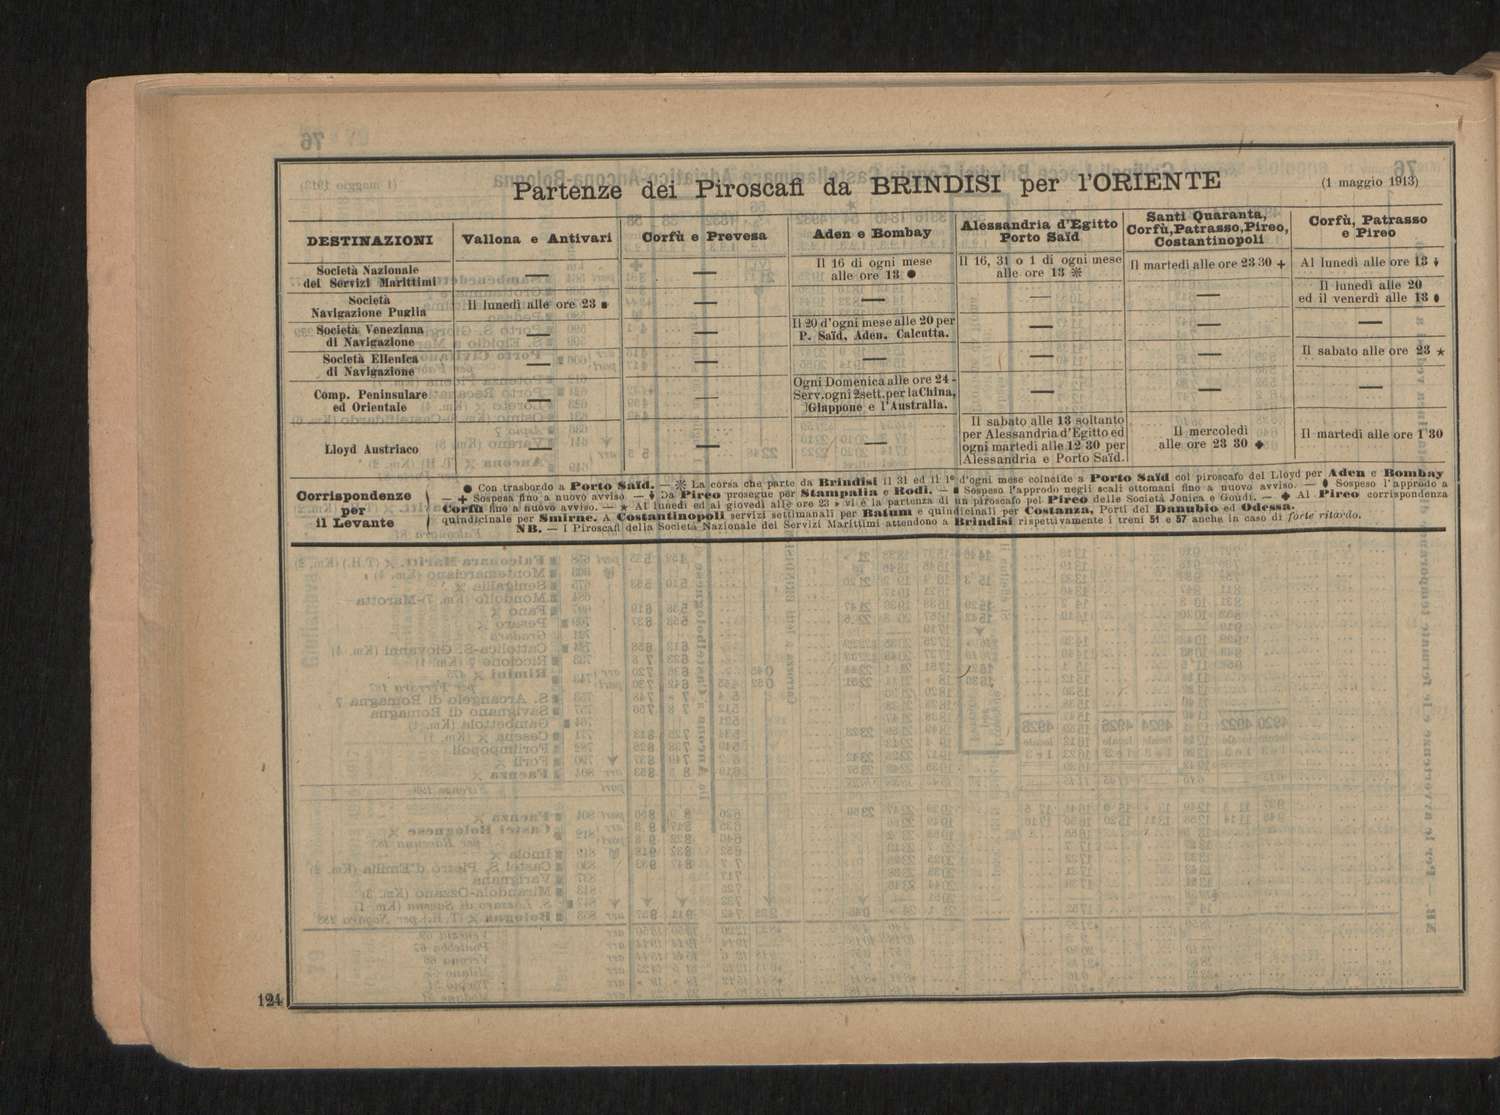 Partenze dei Piroscafi da BRINDISI per l'ORIENTE (1 maggio 1913)
DESTINAZIONI
Vallona e Antivari
Corfù e Prevesa
Aden e Bombay
Alessandria d'Egitto
Porto Saïd
Santi Quaranta,
Corfù, Patrasso, Pireo,
Costantinopoli
Corfù, Patrasso
e Pireo
Società Nazionale
dei Servizi Marittimi
—
—
Il 16 di ogni mese
alle ore 13 ●
Il 16, 31 o 1 di ogni mese
alle ore 13 ❊
Il martedì alle ore 23 30 +
Al lunedì alle ore 13 ♦
Società
Navigazione Puglia
Il lunedì alle ore 23 ■
—
—
—
—
Il lunedì alle 20
ed il venerdì alle 13 ⬮
Società Veneziana
di Navigazione
—
—
Il 20 d'ogni mese alle 20 per
P. Saïd, Aden, Calcutta.
—
—
—
Società Ellenica
di Navigazione
—
—
—
—
—
Il sabato alle ore 23 ★
Comp. Peninsulare
ed Orientale
—
—
Ogni Domenica alle ore 24 -
Serv. ogni 2 sett. per la China,
Giappone e l'Australia.
—
—
—
Lloyd Austriaco
—
—
—
Il sabato alle 13 soltanto
per Alessandria d'Egitto ed
ogni martedì alle 12 30 per
Alessandria e Porto Saïd.
Il mercoledì
alle ore 23 30 ◆
Il martedì alle ore 1 30
Corrispondenze
per
il Levante
● Con trasbordo a Porto Saïd. — ❊ La corsa che parte da Brindisi il 31 ed il 1º d'ogni mese coincide a Porto Saïd col piroscafo del Lloyd per Aden e Bombay
— + Sospesa fino a nuovo avviso — ♦ Da Pireo prosegue per Stampalia e Rodi. — ■ Sospeso l'approdo negli scali ottomani fino a nuovo avviso. — ⬮ Sospeso l'approdo a
Corfù fino a nuovo avviso. — ★ Al lunedì ed al giovedì alle ore 23 vi è la partenza di un piroscafo pel Pireo delle Società Jonica e Goudi. — ◆ Al Pireo corrispondenza
quindicinale per Smirne. A Costantinopoli servizi settimanali per Batum e quindicinali per Costanza, Porti del Danubio ed Odessa.
NB. — I Piroscafi della Società Nazionale dei Servizi Marittimi attendono a Brindisi rispettivamente i treni 51 e 57 anche in caso di forte ritardo.
124